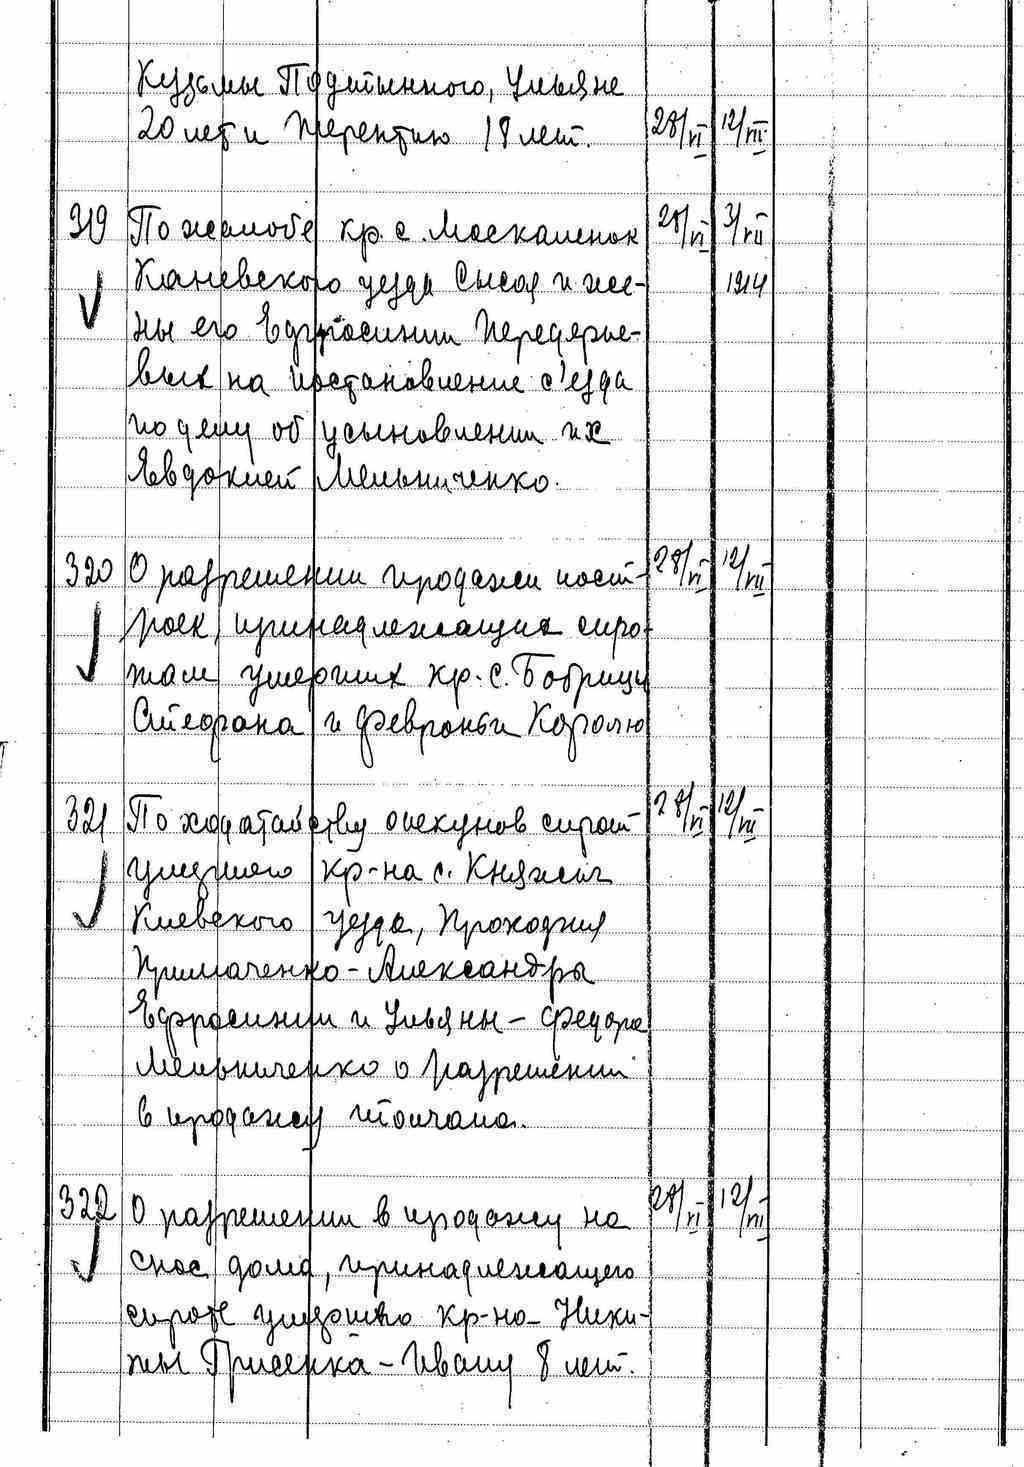 Кузьмы Подтынного, Ульяне
20 лет и Терентию 18 лет. 28/VI 12/VII
319 По жалобе кр. с. Москаленок 28/VI 3/VII
Каневского уезда Сысоя и же- 1914
ны его Ефросинии Передерие-
вых на постановление с'езда
по делу об усыновлении их
Евдокией Мельниченко.
320 О разрешении продажи пост- 28/VI 12/VII
роек, принадлежащих сиро-
там умерших кр. с. Бобрицы
Стефана и Февроньи Королю
321 По ходатайству опекунов сирот 28/VI 12/VII
умершего кр-на с. Княжич
Киевского уезда, Прокофия
Примаченко - Александры
Ефросинии и Ульяны - Федора
Мельниченко о разрешении
в продажу топчана.
322 О разрешении в продажу на 28/VI 12/VII
снос дома, принадлежащего
сироте умершего кр-на Ники-
ты Грисенка - Ивану 8 лет.